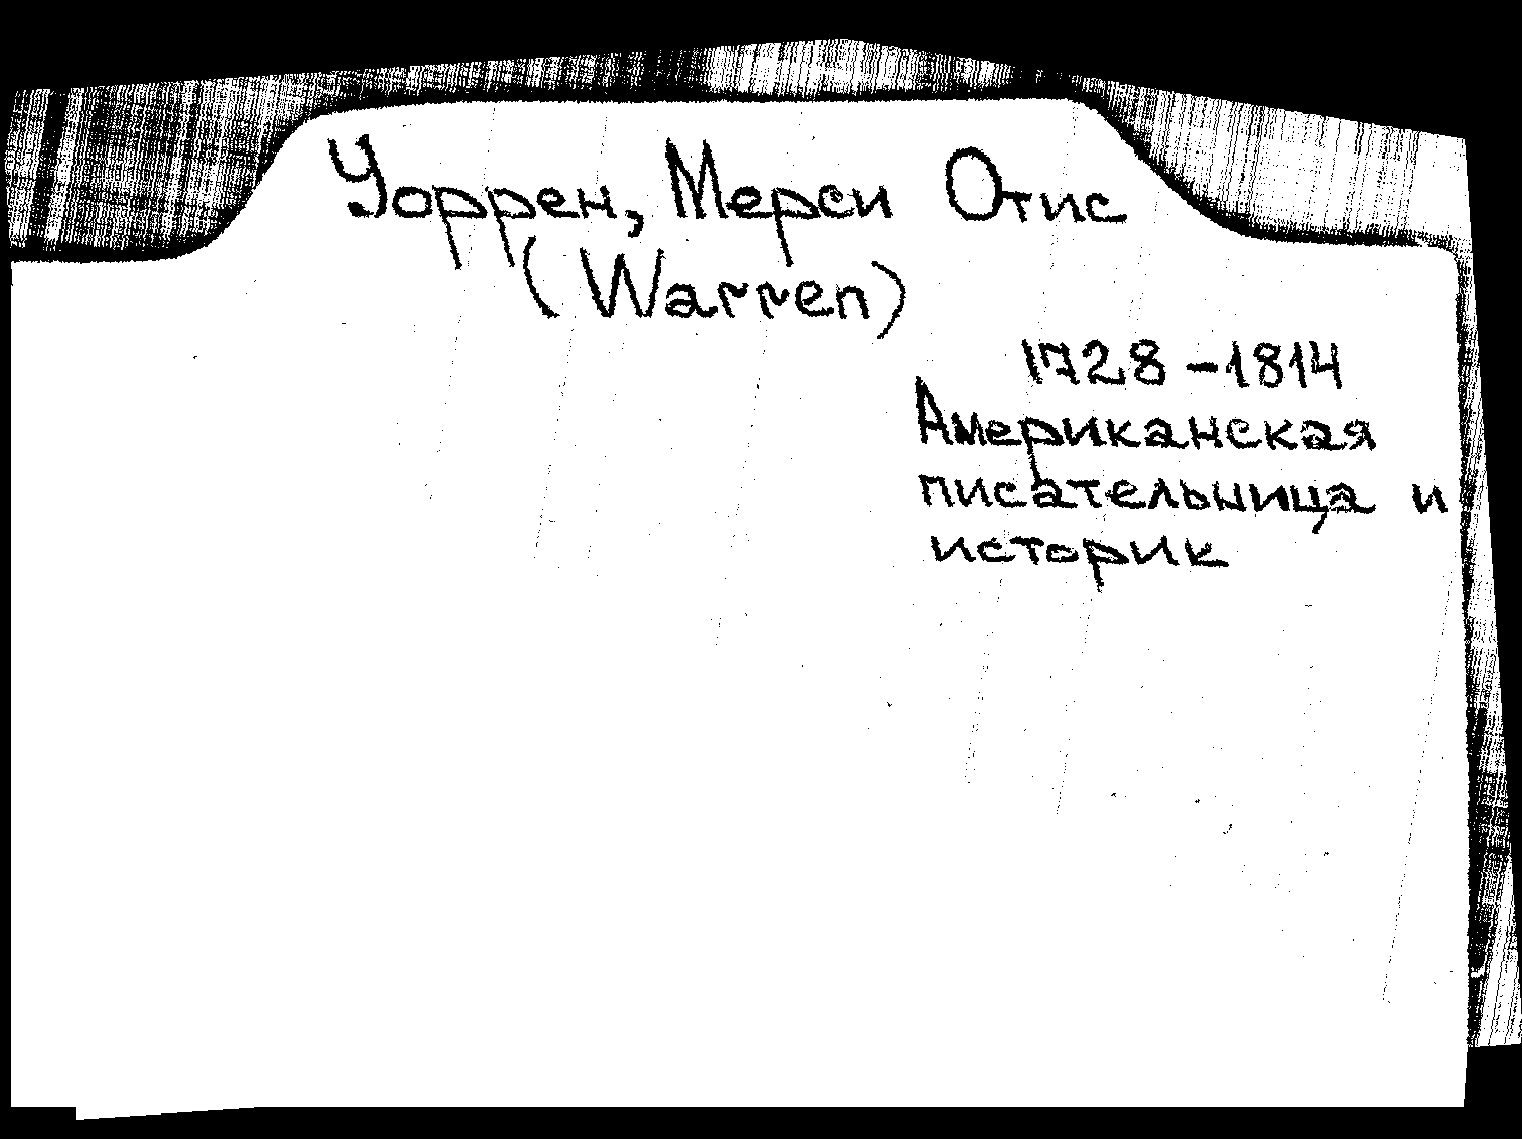 Уоррен, Мерси Отис
(Warren)
1728-1814
Американская
писательница и
историк